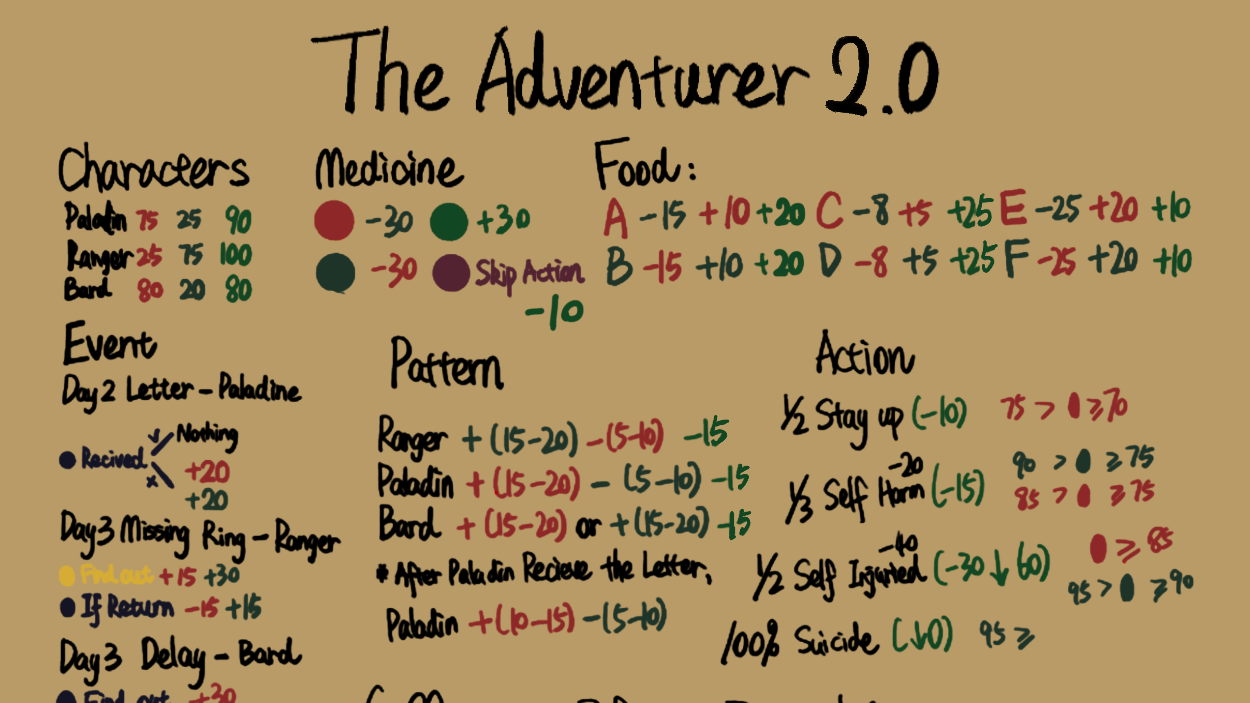 The Adventurer 2.0
Characters
Paladin 75 25 90
Ranger 25 75 100
Bard 80 20 80
Medicine
-30 +30
-30 Skip Action
-10
Food:
A -15 +10 +20 C -8 +5 +25 E -25 +20 +10
B -15 +10 +20 D -8 +5 +25 F -25 +20 +10
Event
Day 2 Letter - Paladine
Recived ✓ Nothing
x +20
+20
Day 3 Missing Ring - Ranger
Find out +15 +30
If Return -15 +15
Day 3 Delay - Bard
Find out +30
Pattern
Ranger +(15-20) -(5-10) -15
Paladin +(15-20) -(5-10) -15
Bard +(15-20) or +(15-20) -15
* After Paladin Recieve the Letter,
Paladin +(10-15) -(5-10)
Action
1/2 Stay up (-10) 75 > ≥70
-20 90 > ≥75
1/3 Self Harm (-15) 85 > ≥75
-40 ≥85
1/2 Self Injuried (-30 ↓ 60) 95 > ≥90
100% Suicide (↓0) 95 ≥